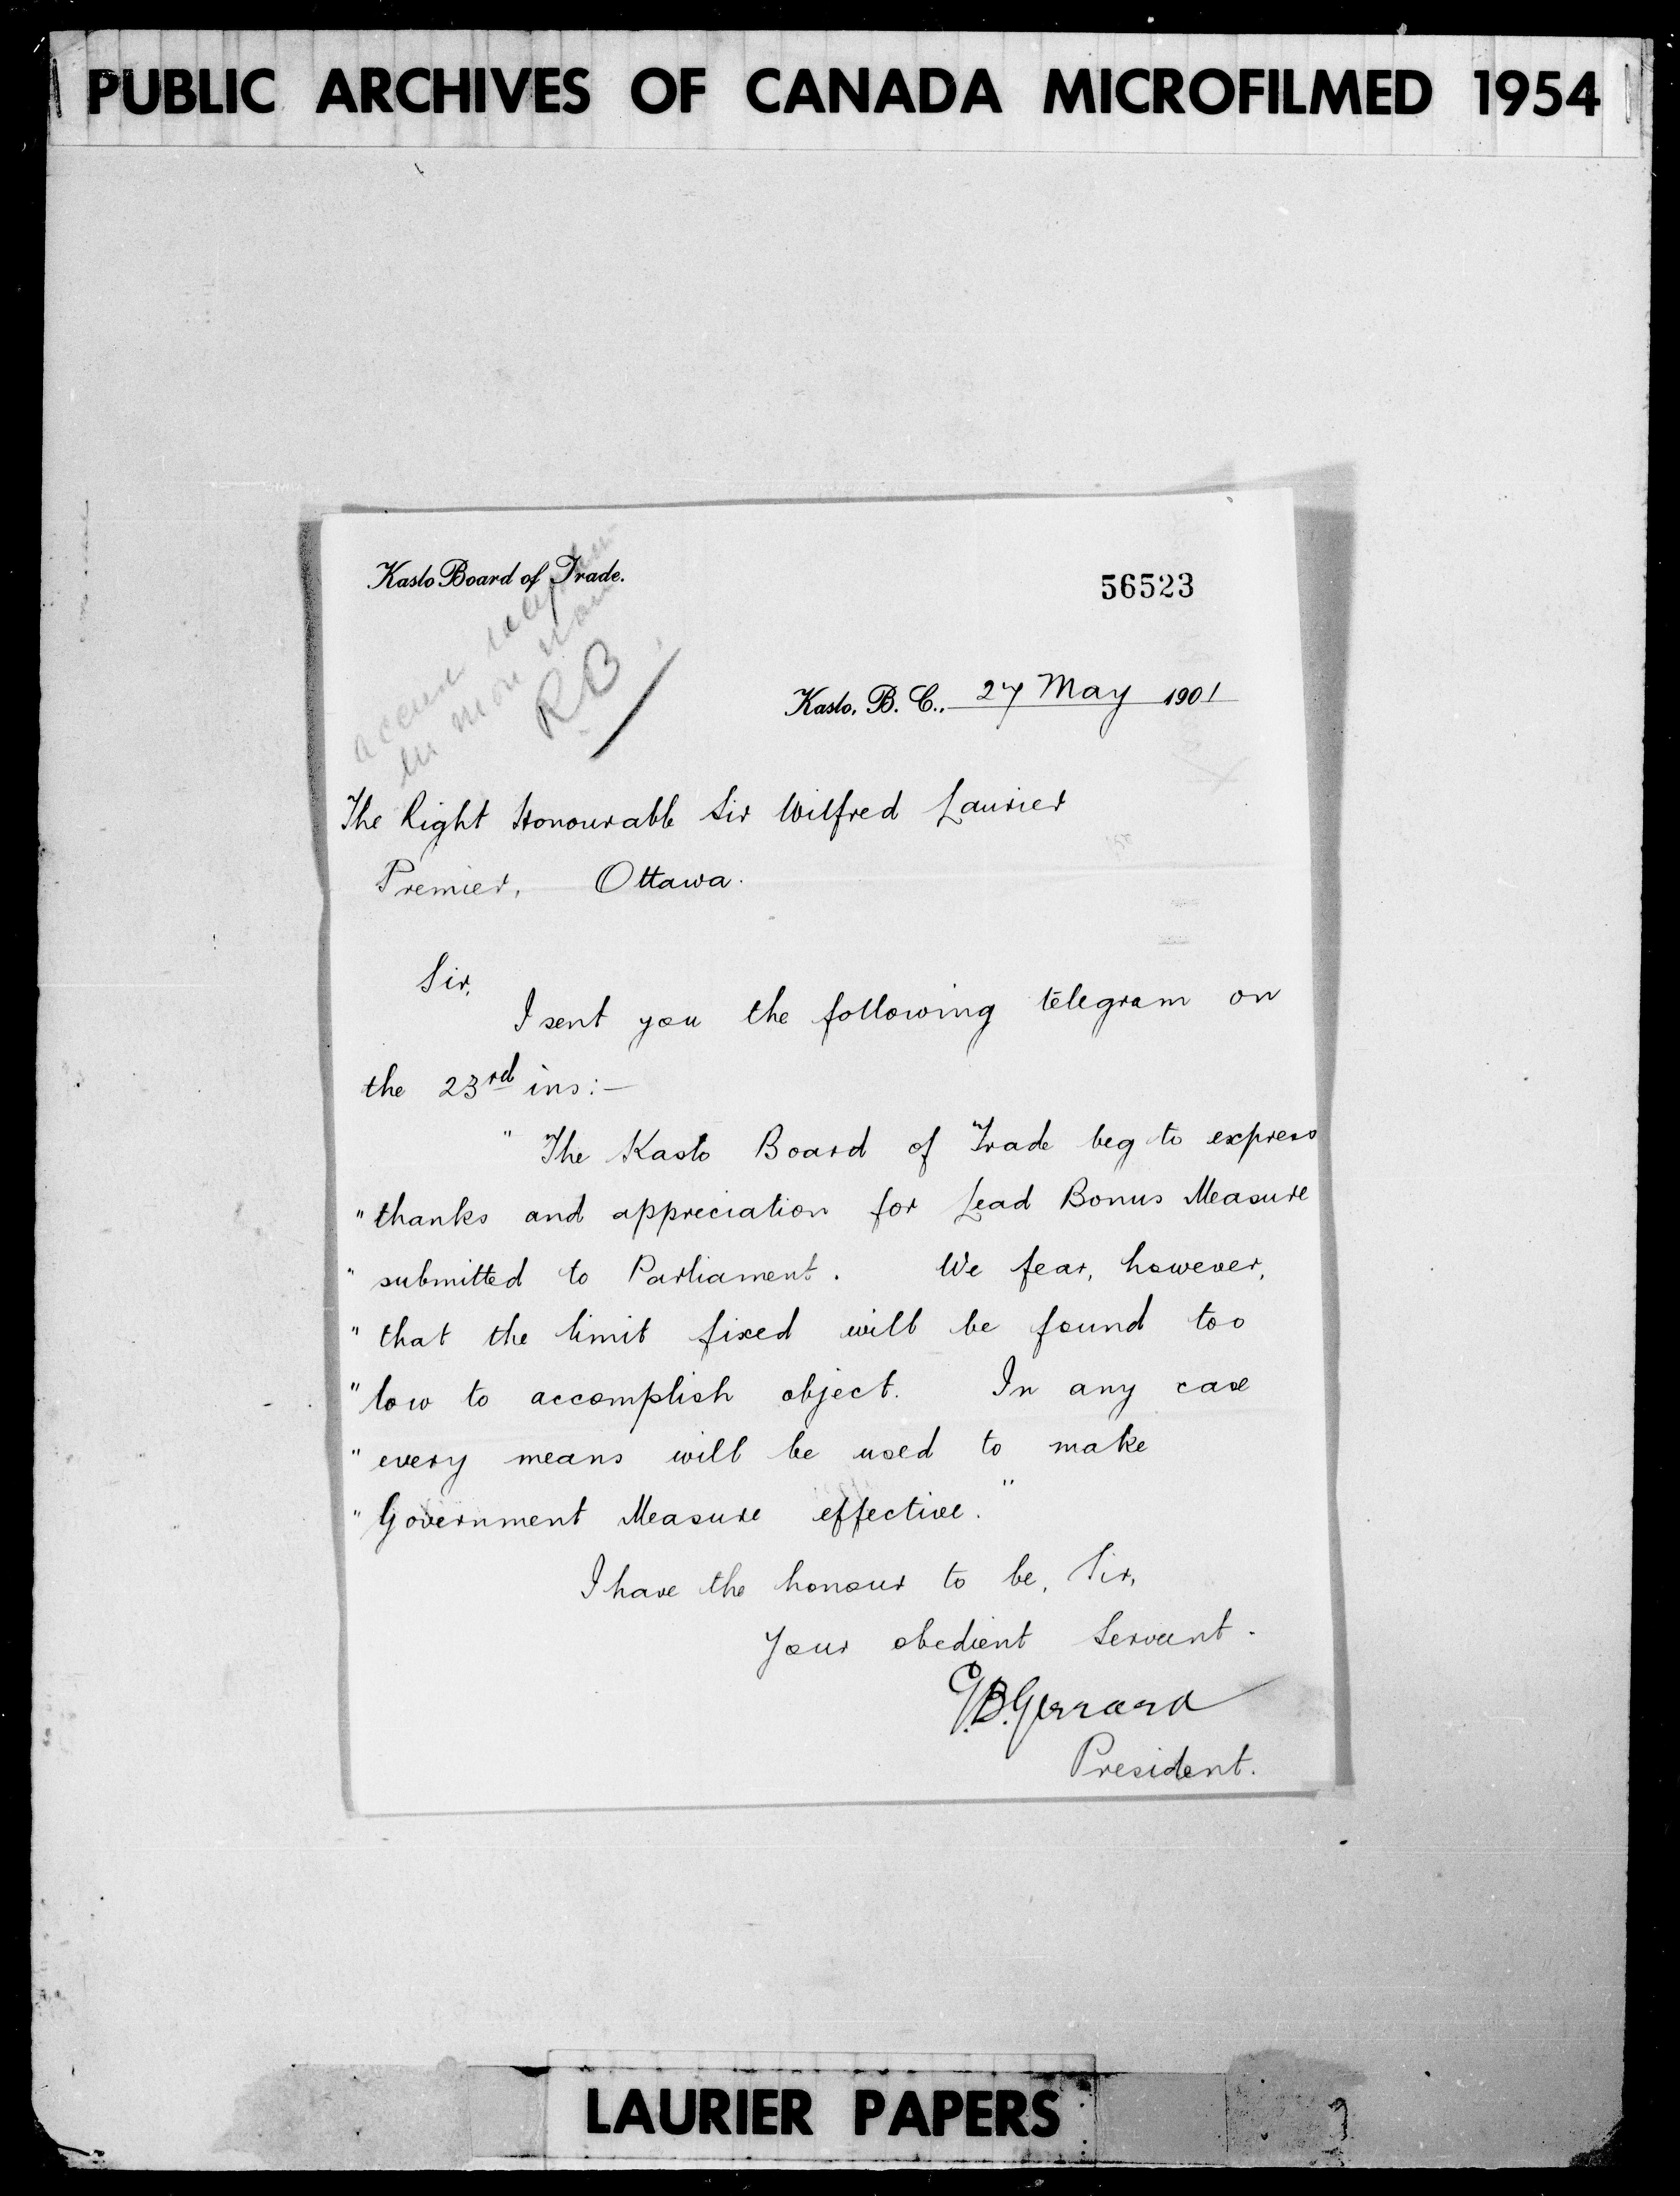 PUBLIC ARCHIVES OF CANADA MICROFILMED 1954
Kaslo Board of Trade.
56523
RB
Kaslo, B. C., 27 May 1901
The Right Honourable Sir Wilfred Laurier
Premier, Ottawa.
Sir,
I sent you the following telegram on
the 23rd ins:—
" The Kaslo Board of Trade beg to express
" thanks and appreciation for Lead Bonus Measure
" submitted to Parliament. We fear, however,
" that the limit fixed will be found too
" low to accomplish object. In any case
" every means will be used to make
" Government Measure effective."
I have the honour to be, Sir,
Your obedient Servant.
G.B. Gerrard
President.
LAURIER PAPERS